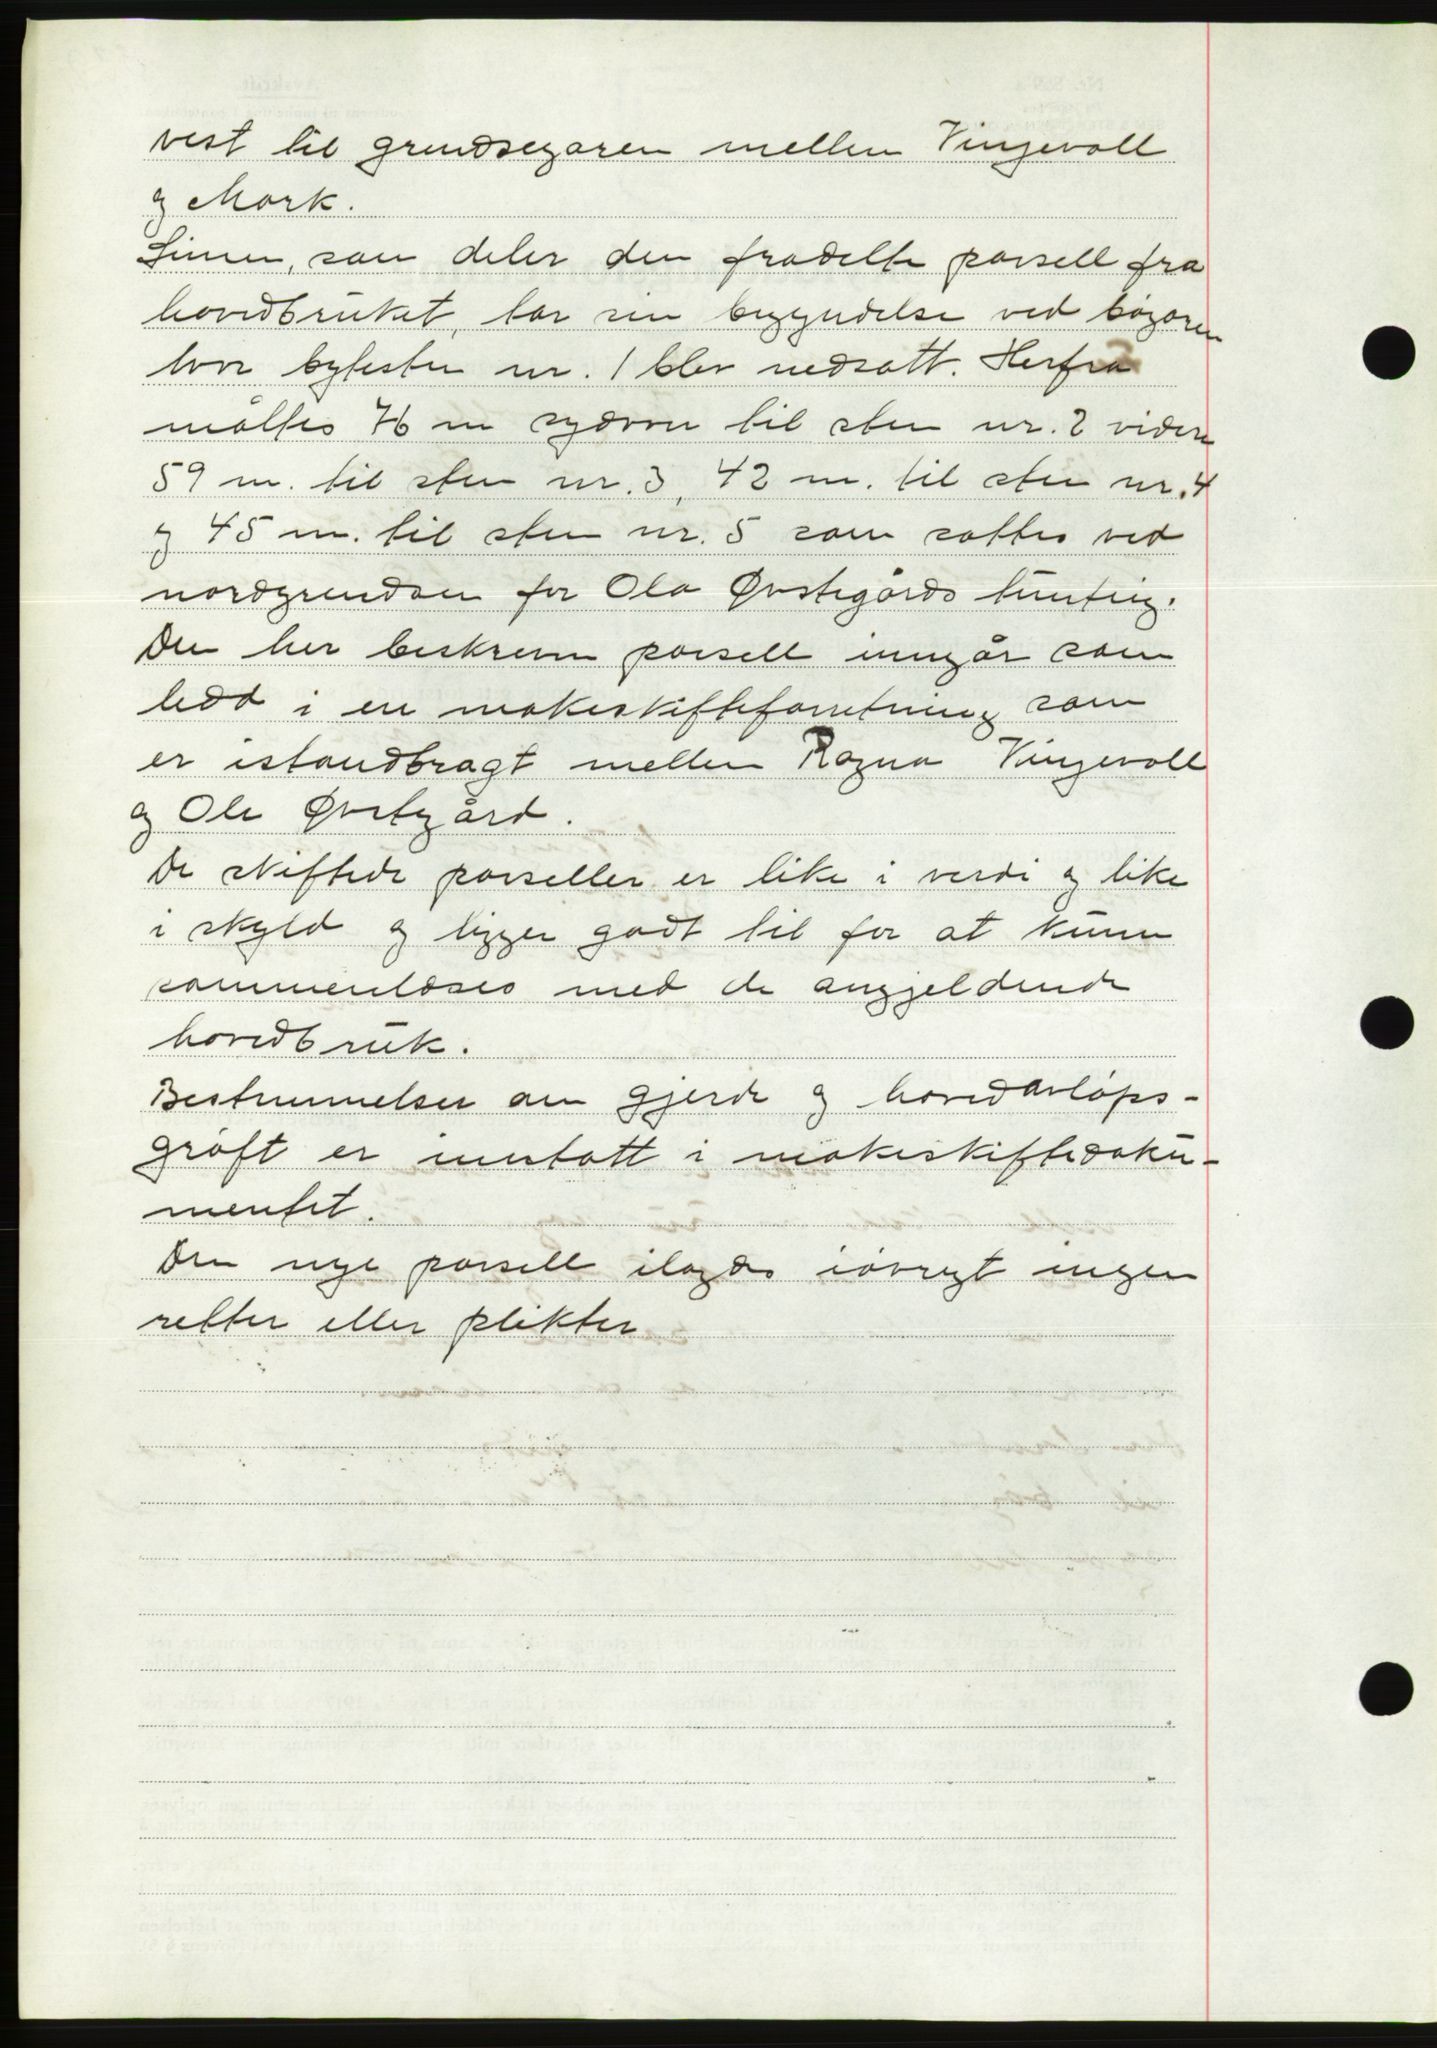 vest til grendsegaren mellem Vingevoll
og Mork.
Linen, som deler den fradelte parsell fra
hovedbruket, tar sin begyndelse ved bøgaren
hvor bytesten nr. 1 blev nedsatt. Herfra
måltes 76 m sydover til sten nr. 2 videre
59 m. til sten nr. 3, 42 m. til sten nr. 4
og 45 m. til sten nr. 5 som sattes ved
nordgrendsen for Ola Øvstegårds
Den her beskrevne parsell inngår som
ledd i en makeskifteforretning som
er istandbragt mellem Ragna Vingevoll
og Ole Øvstegård.
De skiftede parseller er like i verdi og like
i skyld og ligger godt til for at kunne
sammenløses med de angjeldende
hovedbruk.
Bestemmelser om gjerde og hovedavløps-
grøft er inntatt i makeskiftedoku-
mentet.
Den nye parsell ilagdes iøvrigt ingen
retter eller plikter